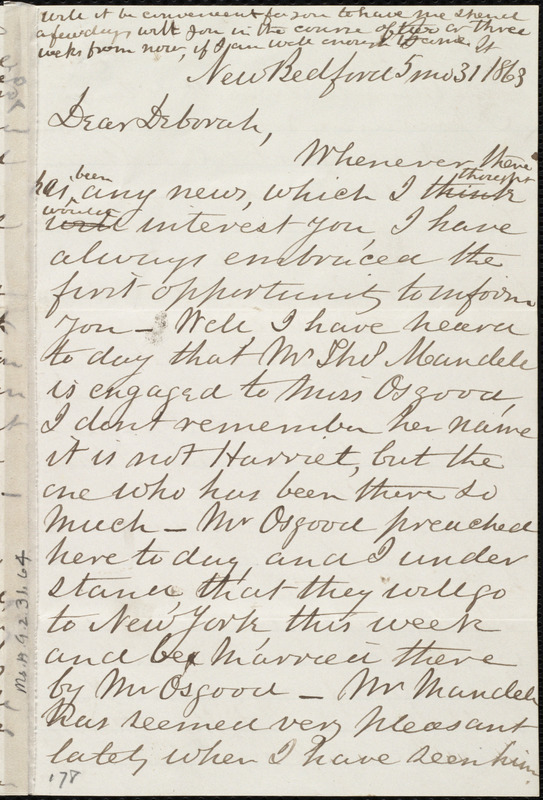 will it be convenient for you to have me spend
a few days with you in the course of two or three
weeks from now, if I am well enough to come.
New Bedford 5 mo 31 1863
Dear Deborah,
Whenever there
has been any news, which I think thought
will would interest you, I have
always embraced the
first opportunity to inform
you — Well I have heard
to day that Mr Thos Mandell
is engaged to Miss Osgood,
I dont remember her name
it is not Harriet, but the
one who has been there so
much — Mr Osgood preached
here to day, and I under
stand, that they will go
to New York this week
and be married there
by Mr Osgood — Mr Mandell
has seemed very pleasant
lately when I have seen him.
178
Ms. A. 9.2.31.64